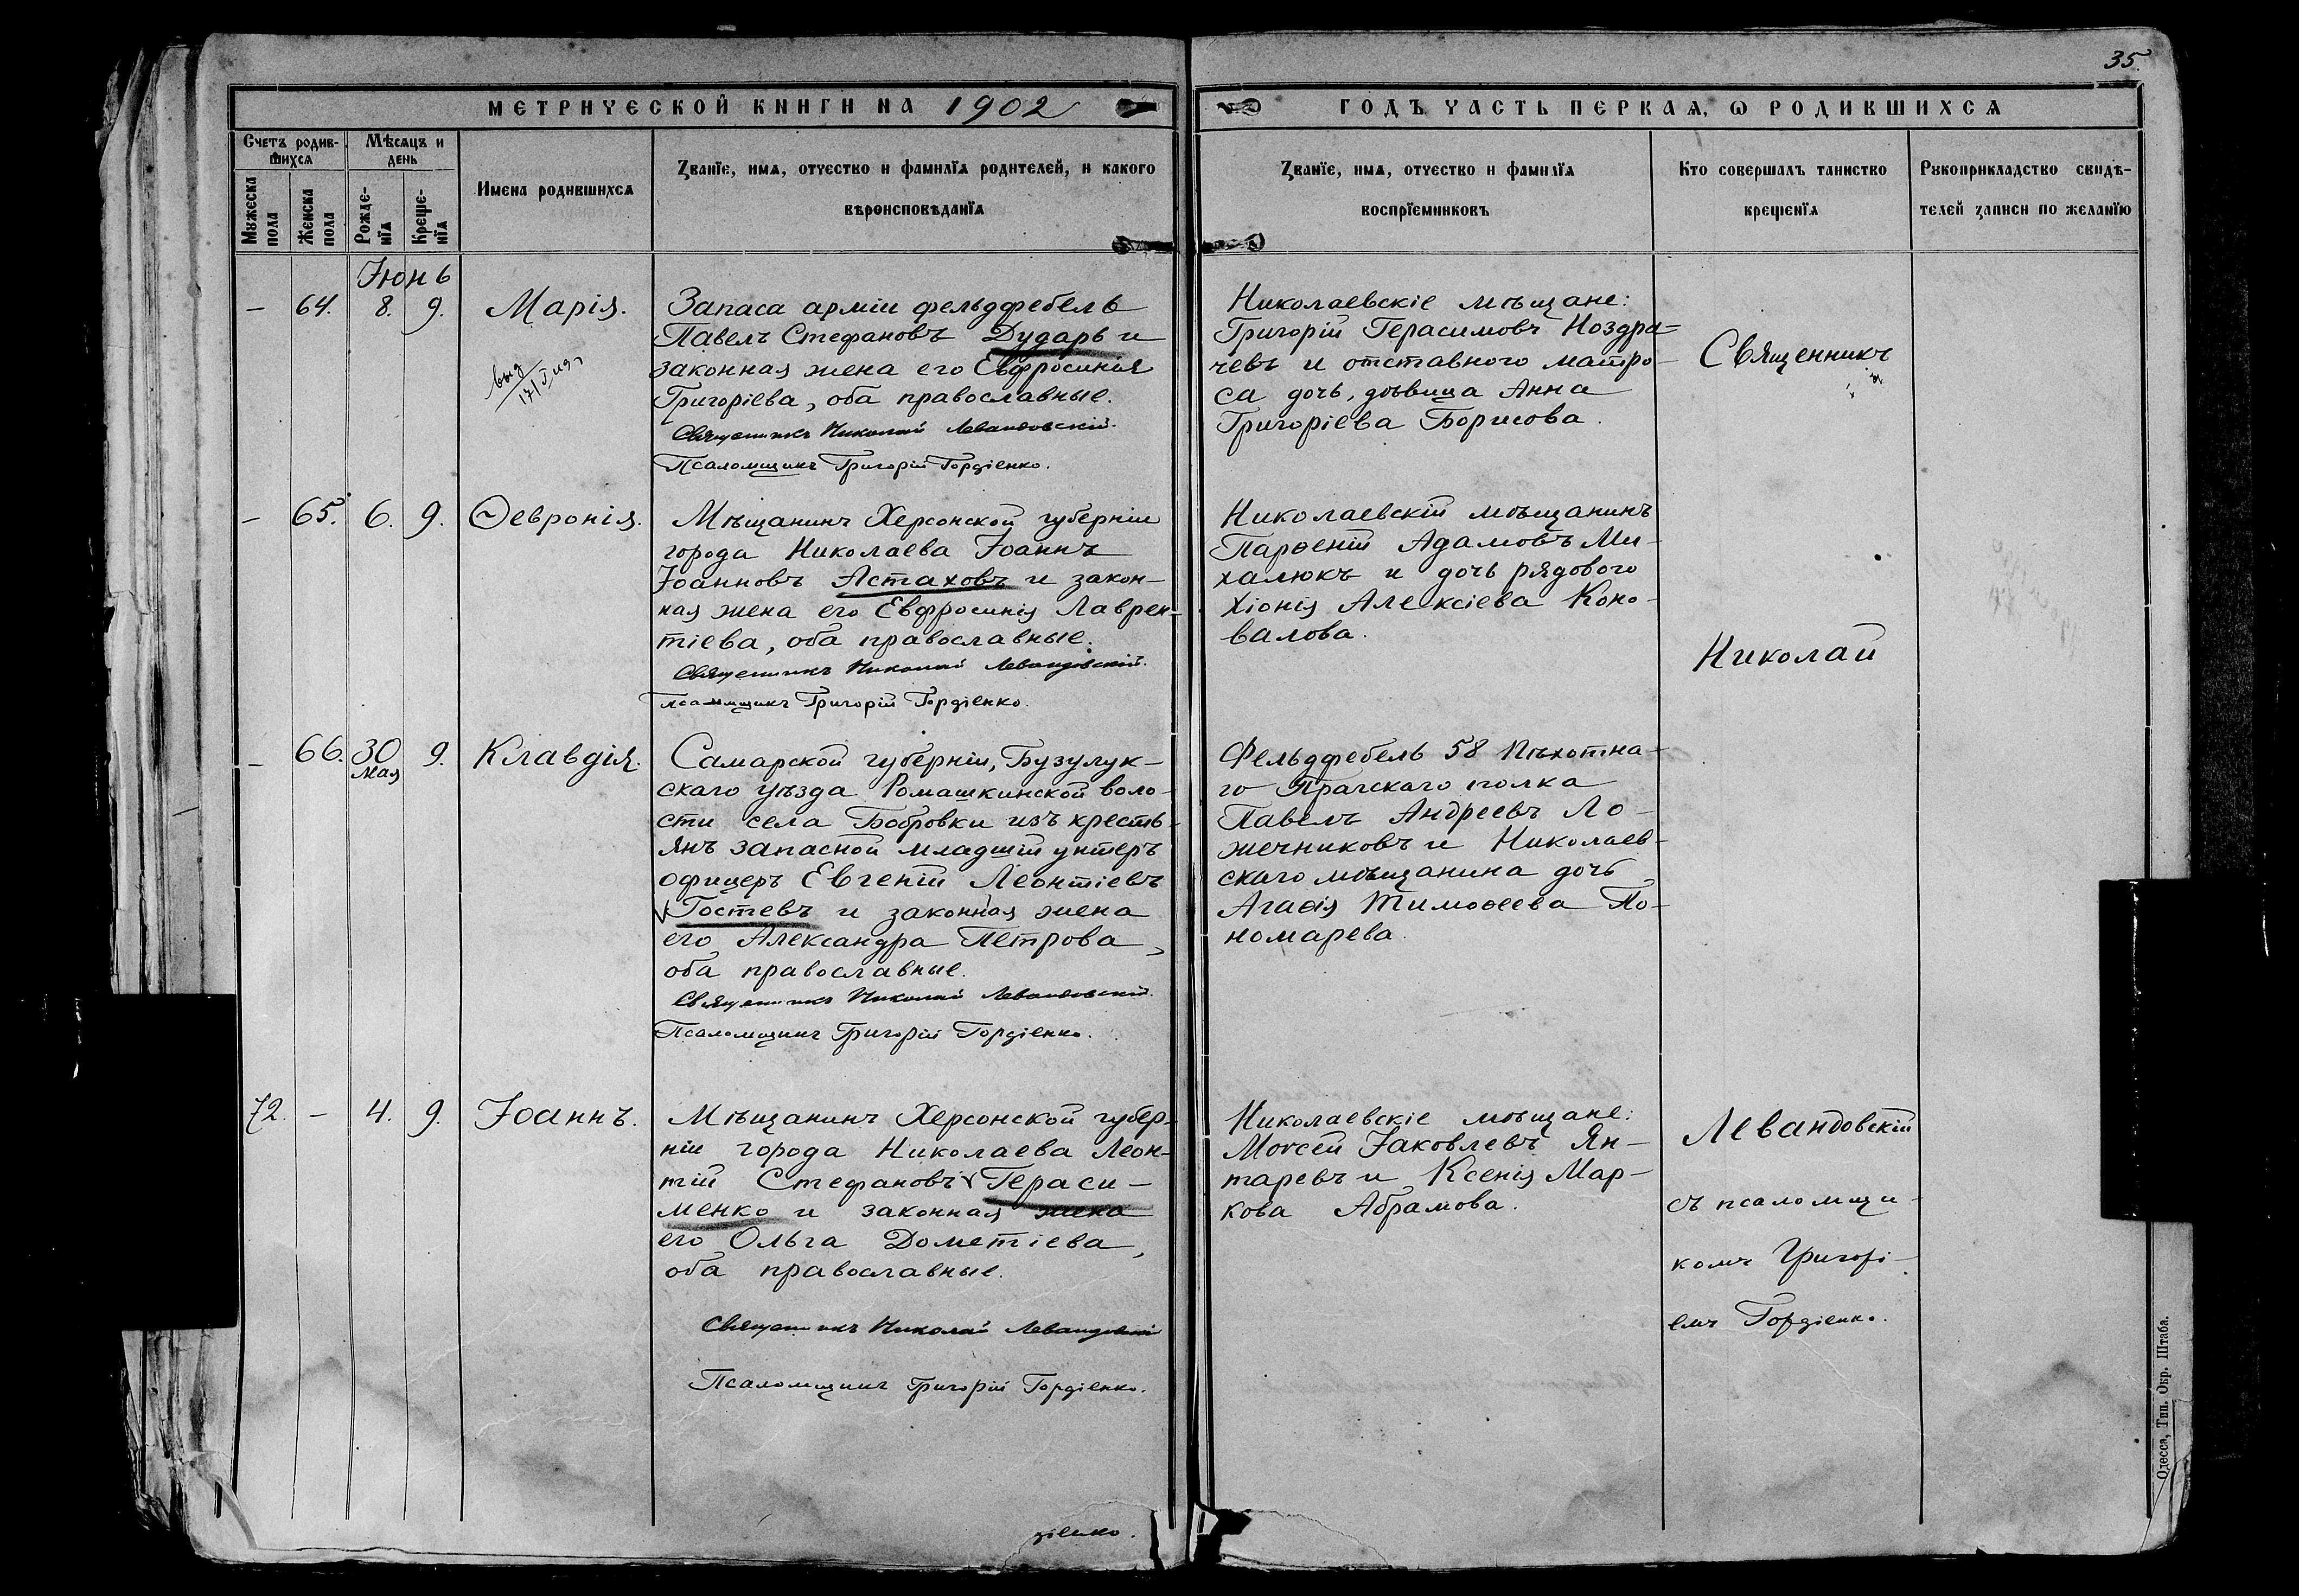 35
МЕТРИЧЕСКОЙ КНИГИ НА 1902
ГОДЪ ЧАСТЬ ПЕРВАЯ, Ѡ РОДИВШИХСЯ
Счетъ родив-
шихся
Мѣсяцъ и
день
Мужеска
пола
Женска
пола
Рожде-
нія
Креще-
нія
Имена родившихся
Званіе, имя, отчество и фамилія родителей, и какого
вѣроисповѣданія
Званіе, имя, отчество и фамилія
воспріемниковъ
Кто совершалъ таинство
крещенія
Рукоприкладство свидѣ-
телей записи по желанію
Іюнь
— 64. 8. 9. Марія.
Запаса арміи фельдфебель
Павелъ Стефановъ Дударь и
законная жена его Евфросинія
Григоріева, оба православные.
Священникъ Николай Левандовскій.
Псаломщикъ Григорій Гордіенко.
Николаевскіе мѣщане:
Григорій Герасимовъ Ноздра=
чевъ и отставного матро-
са дочь, дѣвица Анна
Григоріева Борисова.
Священникъ
выд
— 65. 6. 9. Ѳевронія.
Мѣщанинъ Херсонской губерніи
города Николаева Іоаннъ
Іоанновъ Астаховъ и закон-
ная жена его Евфросинія Лаврен-
тіева, оба православные.
Священникъ Николай Левандовскій.
Псаломщикъ Григорій Гордіенко.
Николаевскій мѣщанинъ
Парѳеній Адамовъ Ми-
халюкъ и дочь рядового
Хіонія Алексіева Коно-
валова.
Николай
— 66. 30 9. Клавдія.
Мая
Самарской губерніи, Бузулук-
скаго уѣзда Ромашкинской воло-
сти села Бобровки изъ кресть-
янъ запасной младшій унтеръ
офицеръ Евгеній Леонтіевъ
Гостевъ и законная жена
его Александра Петрова,
оба православные.
Священникъ Николай Левандовскій.
Псаломщикъ Григорій Гордіенко.
Фельдфебель 58 Пѣхотна-
го Прагскаго полка
Павелъ Андреевъ Ло-
жечниковъ и Николаев-
скаго мѣщанина дочь
Агаѳія Тимоѳеева По-
номарева.
72. — 4. 9. Іоаннъ.
Мѣщанинъ Херсонской губер-
ніи города Николаева Леон-
тій Стефановъ Гераси-
менко и законная жена
его Ольга Дометіева,
оба православные.
Священникъ Николай Левандовскій
Псаломщикъ Григорій Гордіенко.
Николаевскіе мѣщане:
Моѵсей Іаковлевъ Ян-
таревъ и Ксенія Мар-
кова Абрамова.
Левандовскій
съ псаломщи-
комъ Григорі-
емъ Гордіенко.
діенко.
Одесса, Тип. Окр. Штаба.